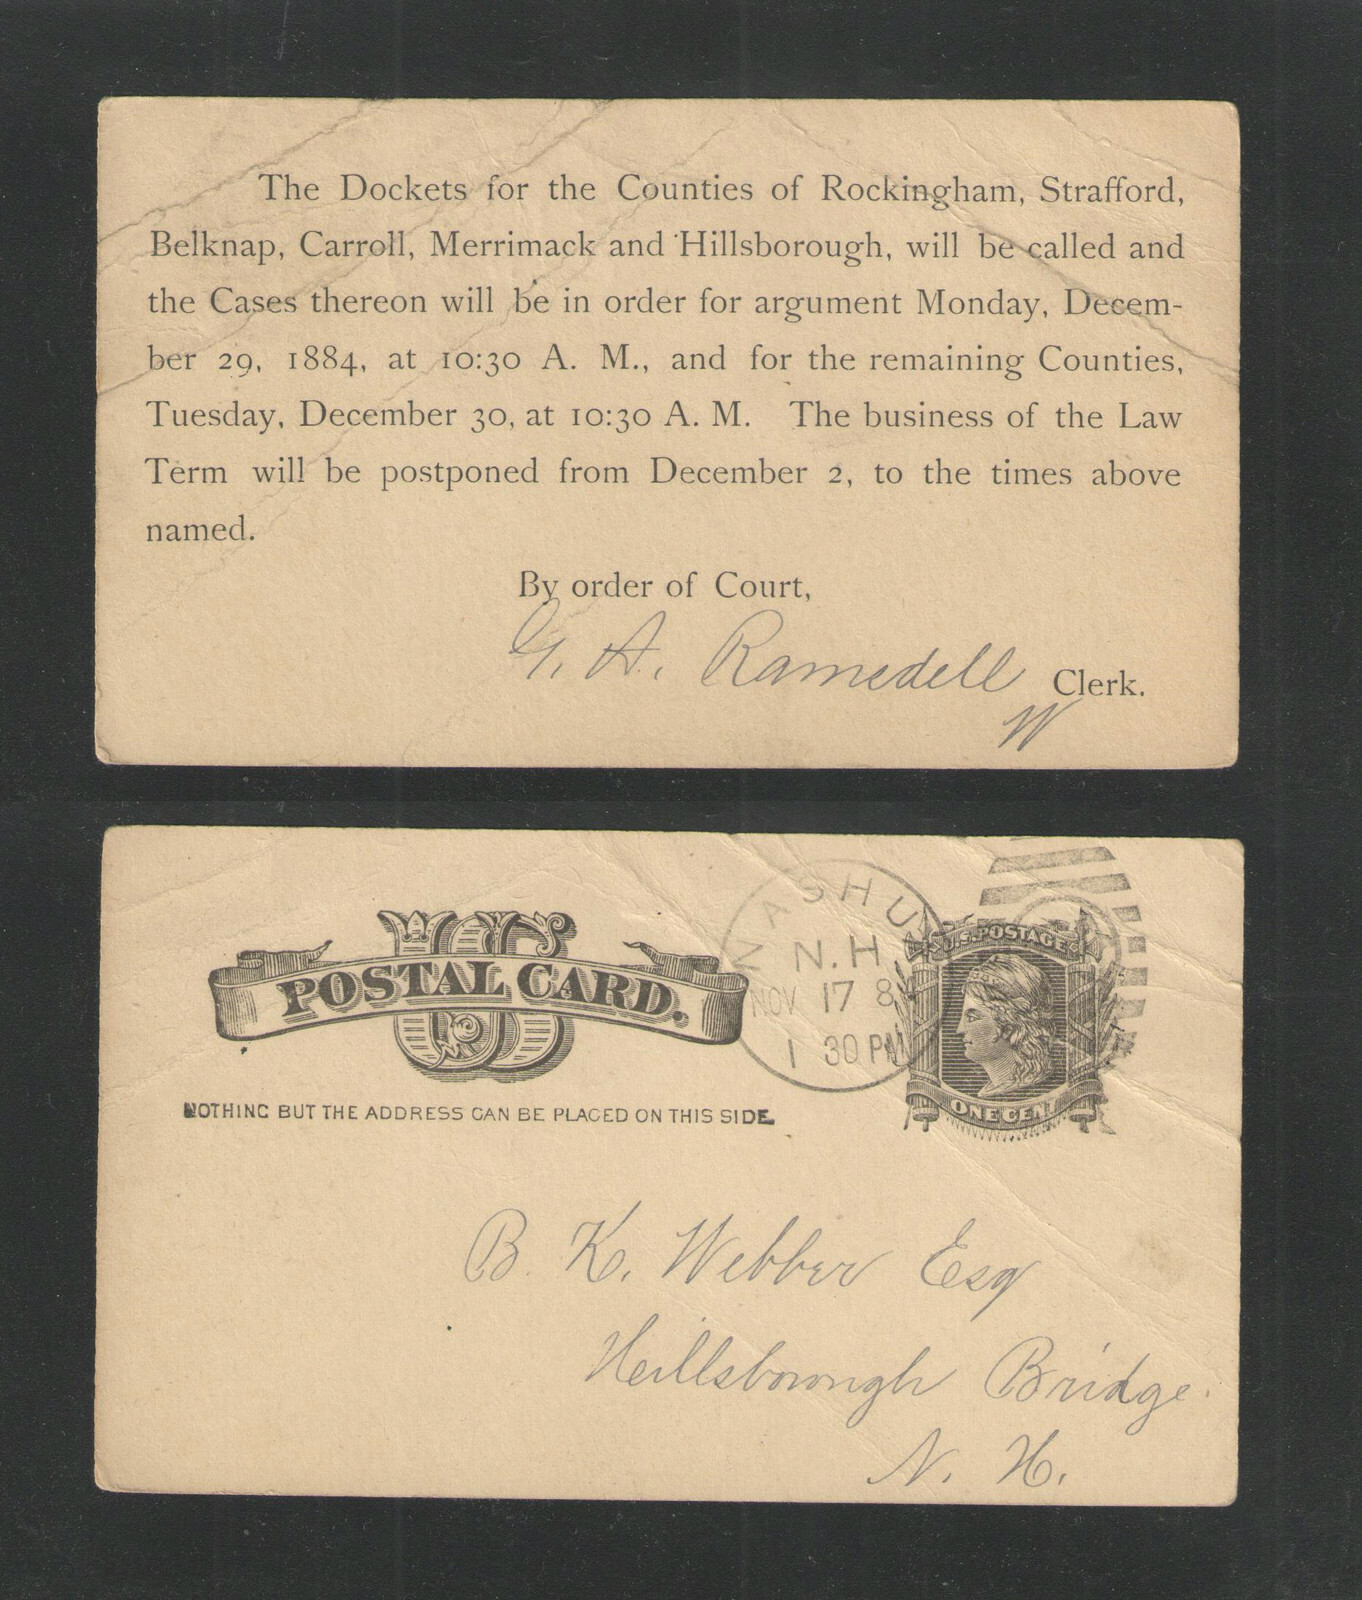 The Dockets for the Counties of Rockingham, Strafford,
Belknap, Carroll, Merrimack and Hillsborough, will be called and
the Cases thereon will be in order for argument Monday, Decem-
ber 29, 1884, at 10:30 A. M., and for the remaining Counties,
Tuesday, December 30, at 10:30 A. M. The business of the Law
Term will be postponed from December 2, to the times above
named.
By order of Court,
G. A. Ramsdell Clerk.
W
US
POSTAL CARD.
NOTHING BUT THE ADDRESS CAN BE PLACED ON THIS SIDE.
NASHU
N.H
NOV 17 8
1 30 PM
U.S. POSTAGE
ONE CENT
B. K. Webber Esq
Hillsborough Bridge.
N. H.